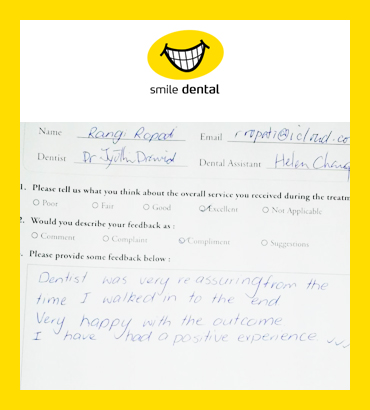 smile dental
Name Rangi Ropati Email rropati@icloud.co
Dentist Dr Dravid Dental Assistant Helen Chang
1. Please tell us what you think about the overall service you received during the treatm
Poor Fair Good Excellent Not Applicable
2. Would you describe your feedback as :
Comment Complaint Compliment Suggestions
. Please provide some feedback below :
Dentist was very reassuring from the
time I walked in to the end
Very happy with the outcome
I have had a positive experience